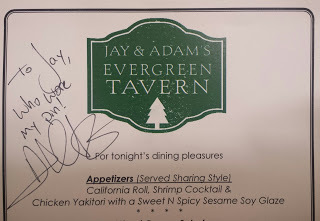 JAY & ADAM'S
EVERGREEN
TAVERN
To Jay,
who wore
my pin!
For tonight's dining pleasures
Appetizers (Served Sharing Style)
California Roll, Shrimp Cocktail &
Chicken Yakitori with a Sweet N Spicy Sesame Soy Glaze
* * * *